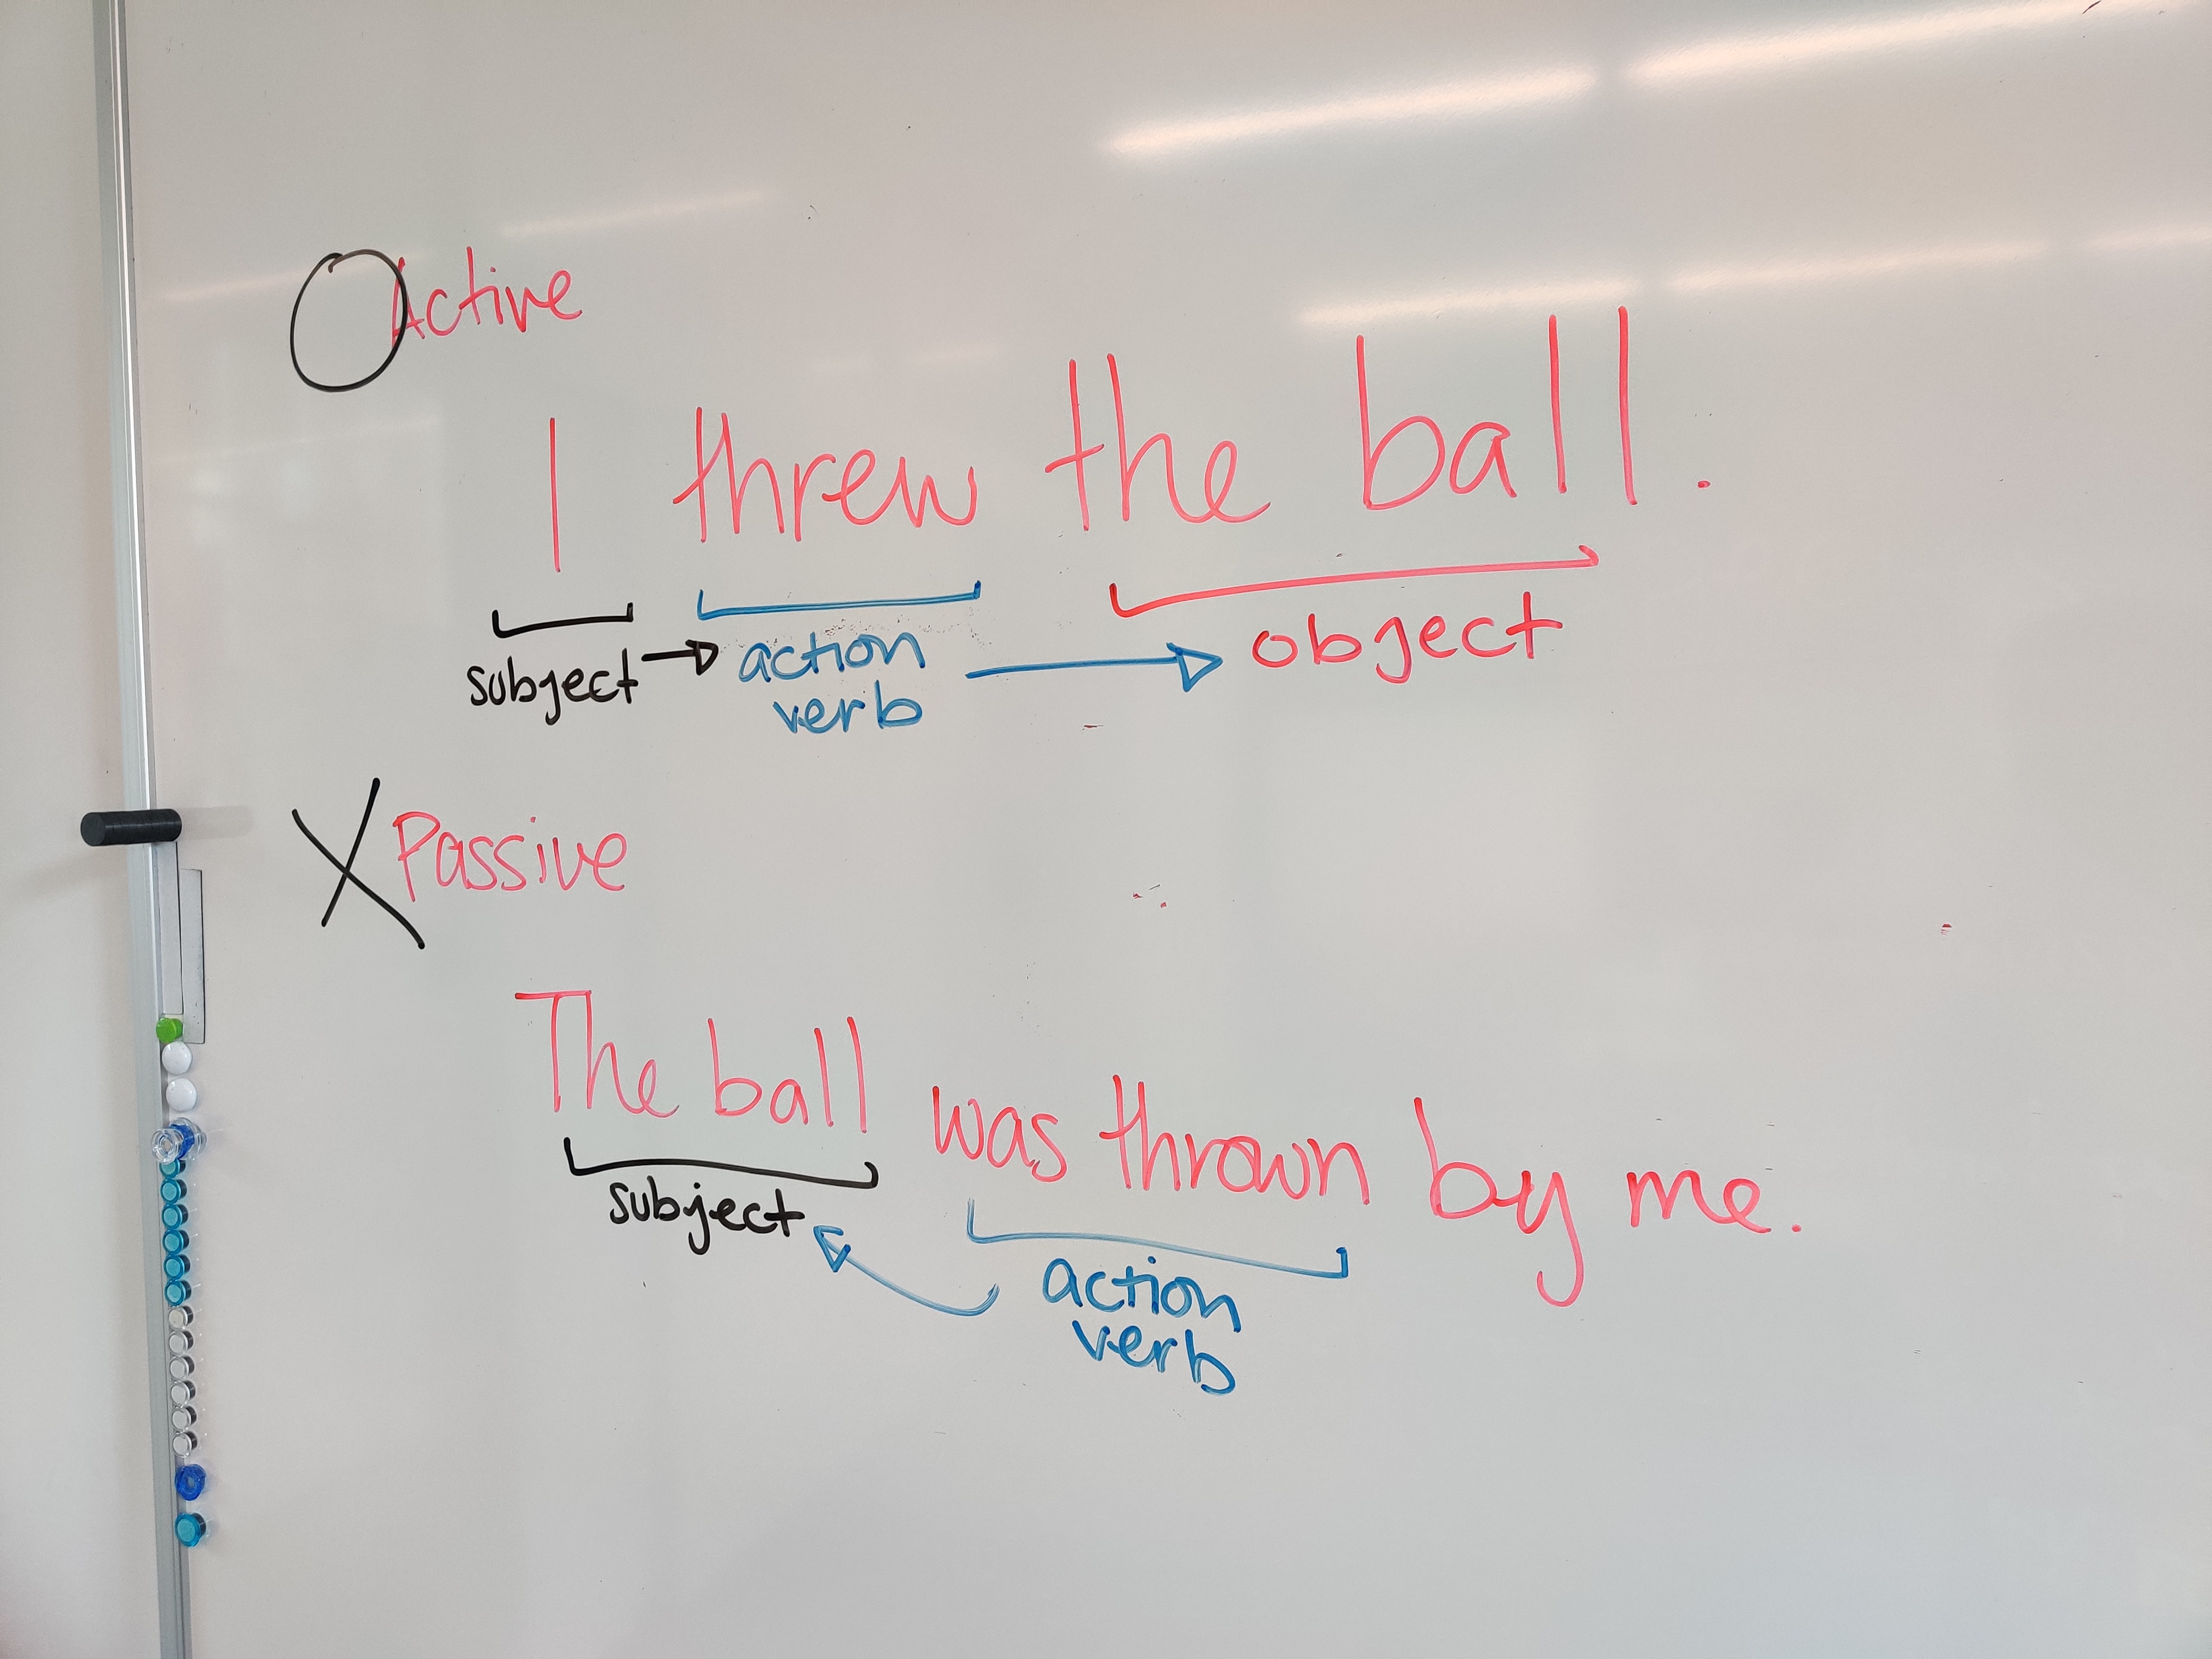 Active
I threw the ball.
subject action object
verb
Passive
The ball was thrown by me.
subject action
verb